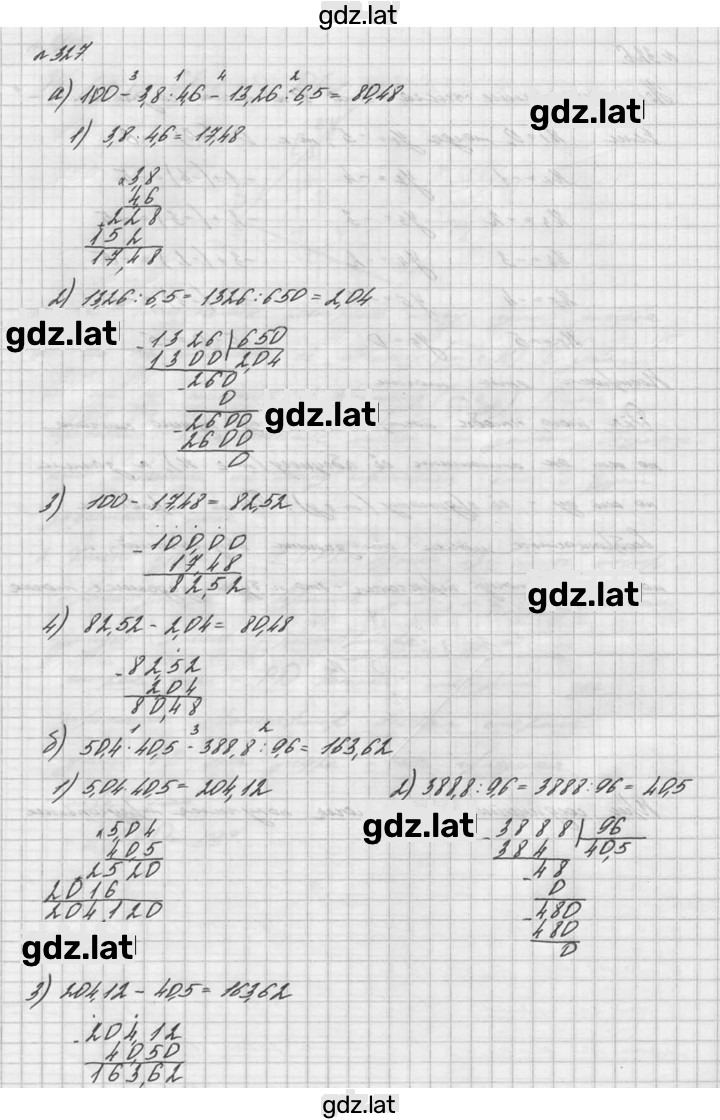 gdz.lat
№327
3 1 4 2
а) 100 - 3,8 · 4,6 - 13,26 : 6,5 = 80,48
gdz.lat
1) 3,8 · 4,6 = 17,48
× 3,8
4,6
+ 228
152
17,48
2) 13,26 : 6,5 = 1326 : 650 = 2,04
gdz.lat
- 1326 | 650
1300 | 2,04
- 260
0
gdz.lat
- 2600
2600
0
3) 100 - 17,48 = 82,52
- 100,00
17,48
82,52
gdz.lat
4) 82,52 - 2,04 = 80,48
- 82,52
2,04
80,48
1 3 2
б) 50,4 · 40,5 - 388,8 : 9,6 = 163,62
1) 5,04 · 40,5 = 204,12
× 5,04
40,5
+ 2520
2016
204,120
2) 388,8 : 9,6 = 3888 : 96 = 40,5
gdz.lat
- 3888 | 96
384 | 40,5
- 48
0
- 480
480
0
gdz.lat
3) 204,12 - 40,5 = 163,62
- 204,12
40,50
163,62
gdz.lat